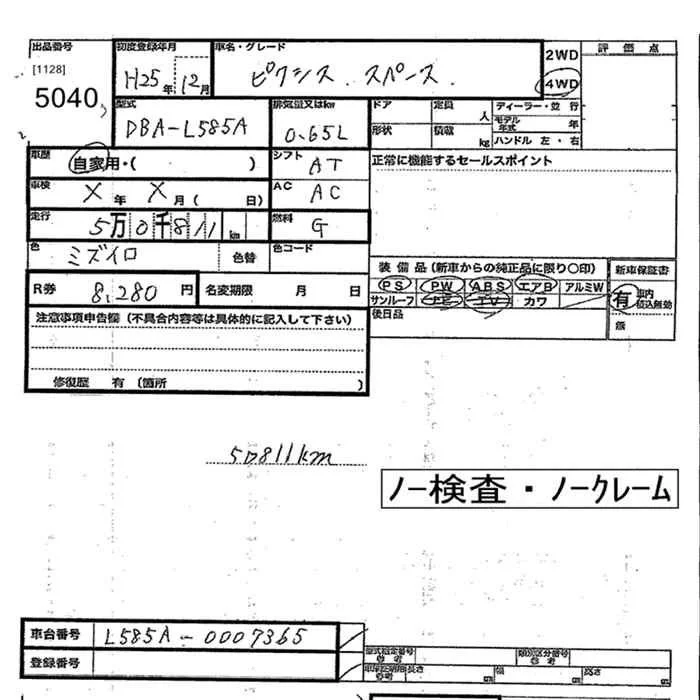 出品番号 初度登録年月 車名・グレード 2WD 評価点
[1128] H25年 12月 ピクシス スペース 4WD
5040
型式 排気量又はkw ドア 定員 人 ディーラー・並行
DBA-L585A 0.65L 形状 積載 kg モデル年式 年
ハンドル 左・右
車歴 自家用・( ) シフト AT 正常に機能するセールスポイント
車検 X年 X月 ( 日) AC AC
走行 5万0千811km 燃料 G
色 ミズイロ 色替 色コード
装備品(新車からの純正品に限り○印) 新車保証書
PS PW ABS エアB アルミW 有
サンルーフ TV カワ 無
R券 8,280円 名変期限 月 日 後日品
注意事項申告欄(不具合内容等は具体的に記入して下さい)
修復歴 有 (箇所 )
50811km
ノー検査・ノークレーム
車台番号 L585A-0007365
登録番号 型式指定番号 参考 類別区分番号 参考
長さ cm 幅 cm 高さ cm